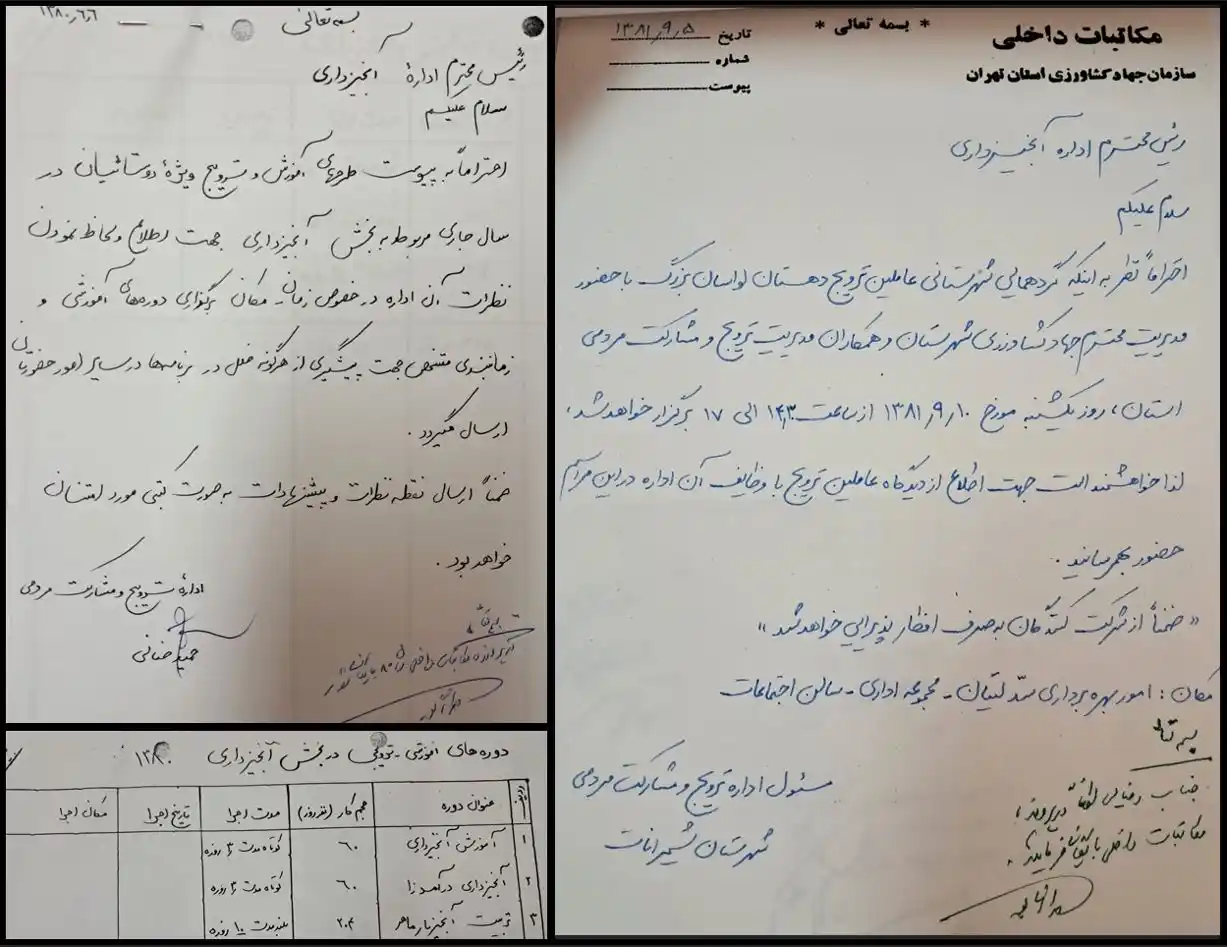 مکاتبات داخلی
* بسمه تعالی *
سازمان جهاد کشاورزی استان تهران
تاریخ ۱۳۸۱٫۹٫۵
شماره
پیوست
رئیس محترم اداره آبخیزداری
سلام علیکم
احتراماً نظر به اینکه گردهمایی شهرستانی عاملین ترویج دهستان لواسان بزرگ با حضور
مدیریت محترم جهاد کشاورزی شهرستان و همکاران مدیریت ترویج و مشارکت مردمی
استان، روز یکشنبه مورخ ۱۳۸۱٫۹٫۱۰ از ساعت ۱۴٫۳۰ الی ۱۷ برگزار خواهد شد،
لذا خواهشمند است جهت اطلاع از دیدگاه عاملین ترویج با وظایف آن اداره در این مراسم
حضور بهم رسانید.
«ضمناً از شرکت کنندگان به صرف افطار پذیرایی خواهد شد»
مکان: امور بهره برداری سد لتیان - مجموعه اداری - سالن اجتماعات
مسئول اداره ترویج و مشارکت مردمی
شهرستان شمیرانات
جناب رضایی لطفاً در پرونده
مکاتبات داخلی فرمایید.
بسمه تعالی
۱۳۸۰٫۶٫۶
رئیس محترم ادارۀ آبخیزداری
سلام علیکم
احتراماً به پیوست طرحهای آموزش و ترویج ویژۀ روستائیان در
سال جاری مربوط به بخش آبخیزداری جهت اطلاع و لحاظ نمودن
نظرات آن اداره در خصوص زمان و مکان برگزاری دوره‌های آموزشی و
زمانبندی مشخص جهت پیشگیری از هرگونه خلل در برنامه‌ها و سایر امور حضورتان
ارسال میگردد.
ضمناً ارسال نقطه نظرات و پیشنهادات به صورت کتبی مورد امتنان
خواهد بود.
ادارۀ ترویج و مشارکت مردمی
دوره‌های آموزشی - ترویجی در بخش آبخیزداری ۱۳۸۰
ردیف عنوان دوره حجم کار (نفرروز) مدت اجرا تاریخ اجرا مکان اجرا
۱ آموزش آبخیزداری ۶۰ کوتاه مدت ۳ روزه
۲ آبخیزداری درآمدزا ۶۰ کوتاه مدت ۳ روزه
۳ تربیت آبخیزیار ماهر ۲۰۴ بلند مدت ۱۰ روزه